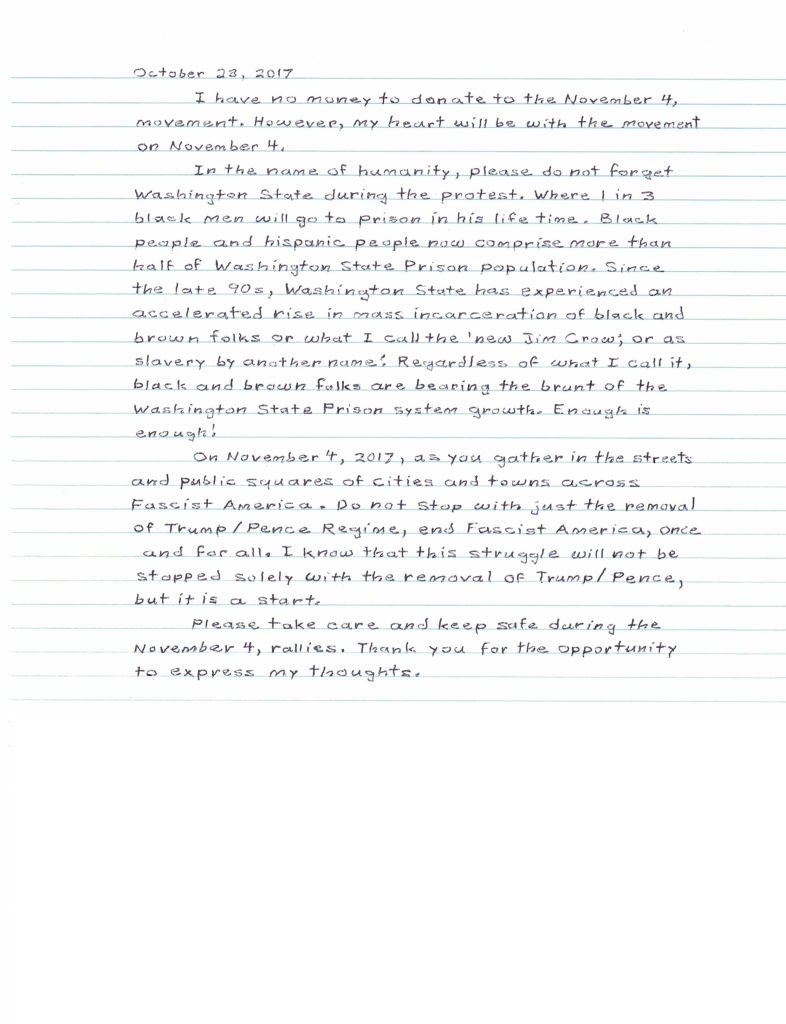 October 23, 2017
I have no money to donate to the November 4,
movement. However, my heart will be with the movement
on November 4.
In the name of humanity, please do not forget
Washington State during the protest. Where 1 in 3
black men will go to prison in his life time. Black
people and hispanic people now comprise more than
half of Washington State Prison population. Since
the late 90s, Washington State has experienced an
accelerated rise in mass incarceration of black and
brown folks or what I call the 'new Jim Crow,' or as
slavery by another name.' Regardless of what I call it,
black and brown folks are bearing the brunt of the
Washington State Prison system growth. Enough is
enough!
On November 4, 2017, as you gather in the streets
and public squares of cities and towns across
Fascist America. Do not stop with just the removal
of Trump/Pence Regime, end Fascist America, once
and for all. I know that this struggle will not be
stopped solely with the removal of Trump/Pence,
but it is a start.
Please take care and keep safe during the
November 4, rallies. Thank you for the opportunity
to express my thoughts.